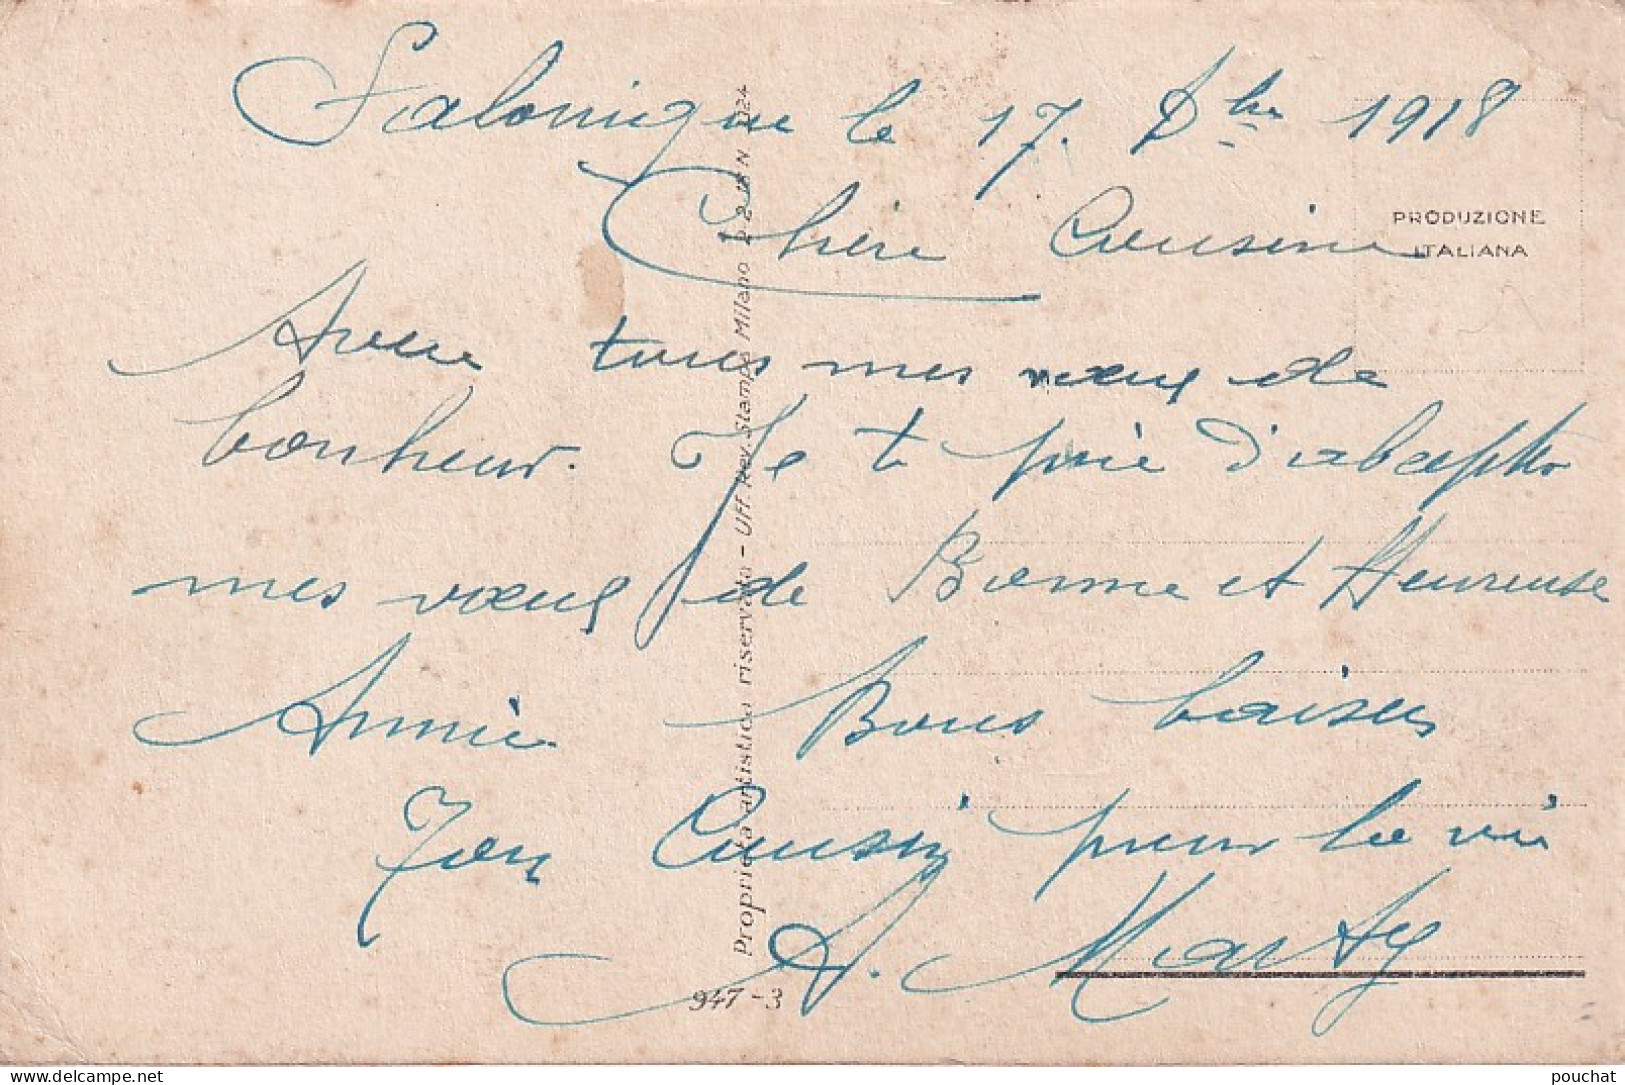 Salonique le 17. Dbre 1918
Chère Cousine
PRODUZIONE
ITALIANA
Avec tous mes vœux de
bonheur. Je te prie d'abcepter
mes vœux de Bonne et Heureuse
Année. Bons baisers
Ton Cousin pour la vie
A. Marty
Proprietà artistica riservata - Uff. Rev. Stampa Milano 2-2-18 N
947-3
www.delcampe.net
pouchat